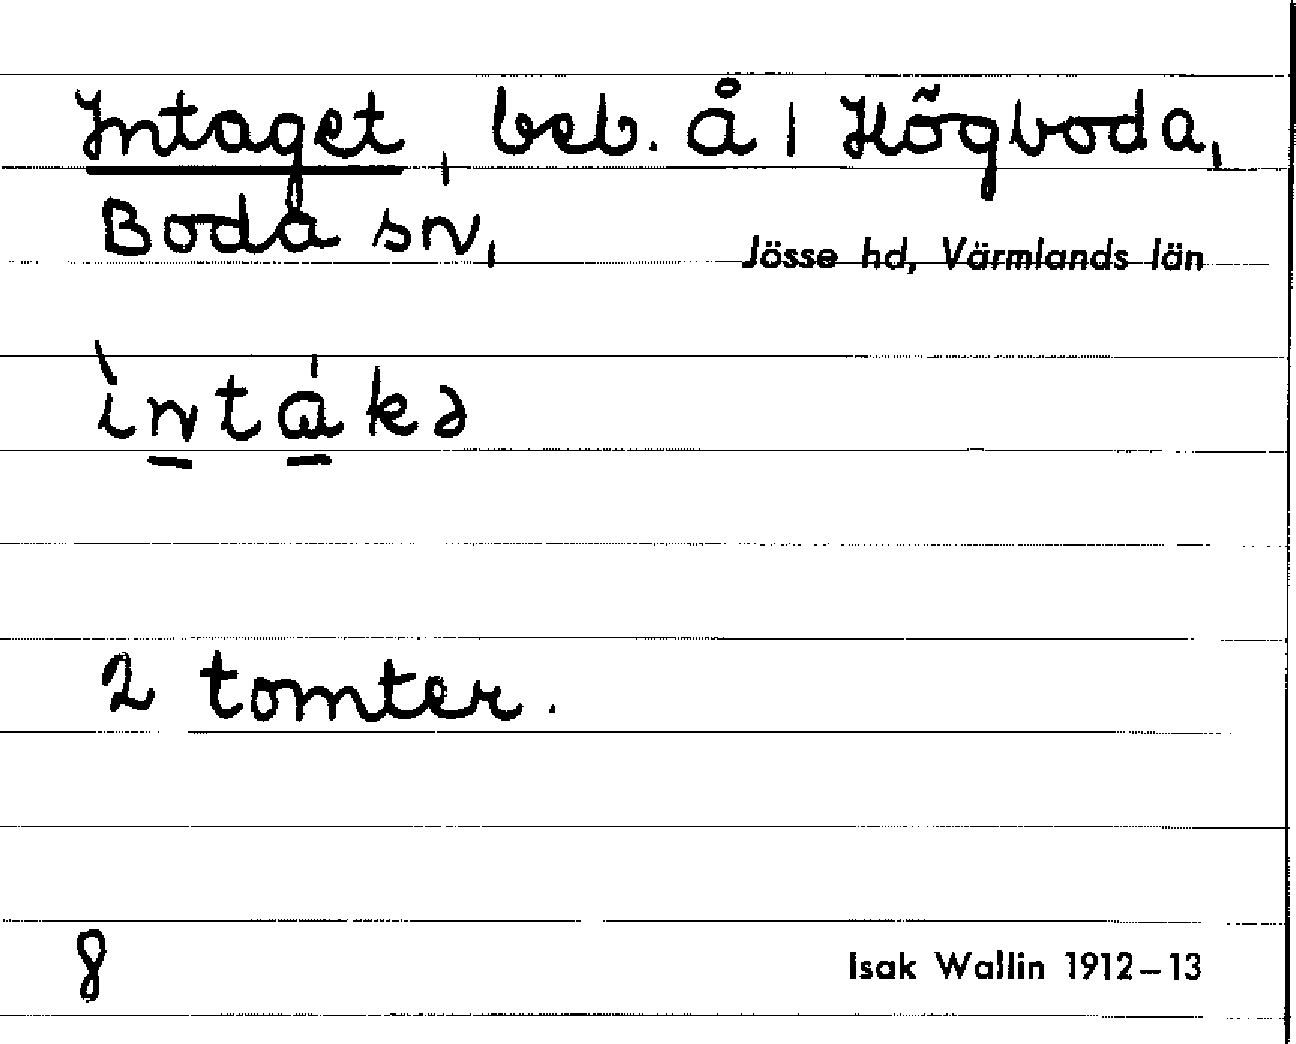 Intaget, beb. å 1 Högboda,
Boda sn,
Jösse hd, Värmlands län
ìntákə
2 tomter.
8
Isak Wallin 1912–13